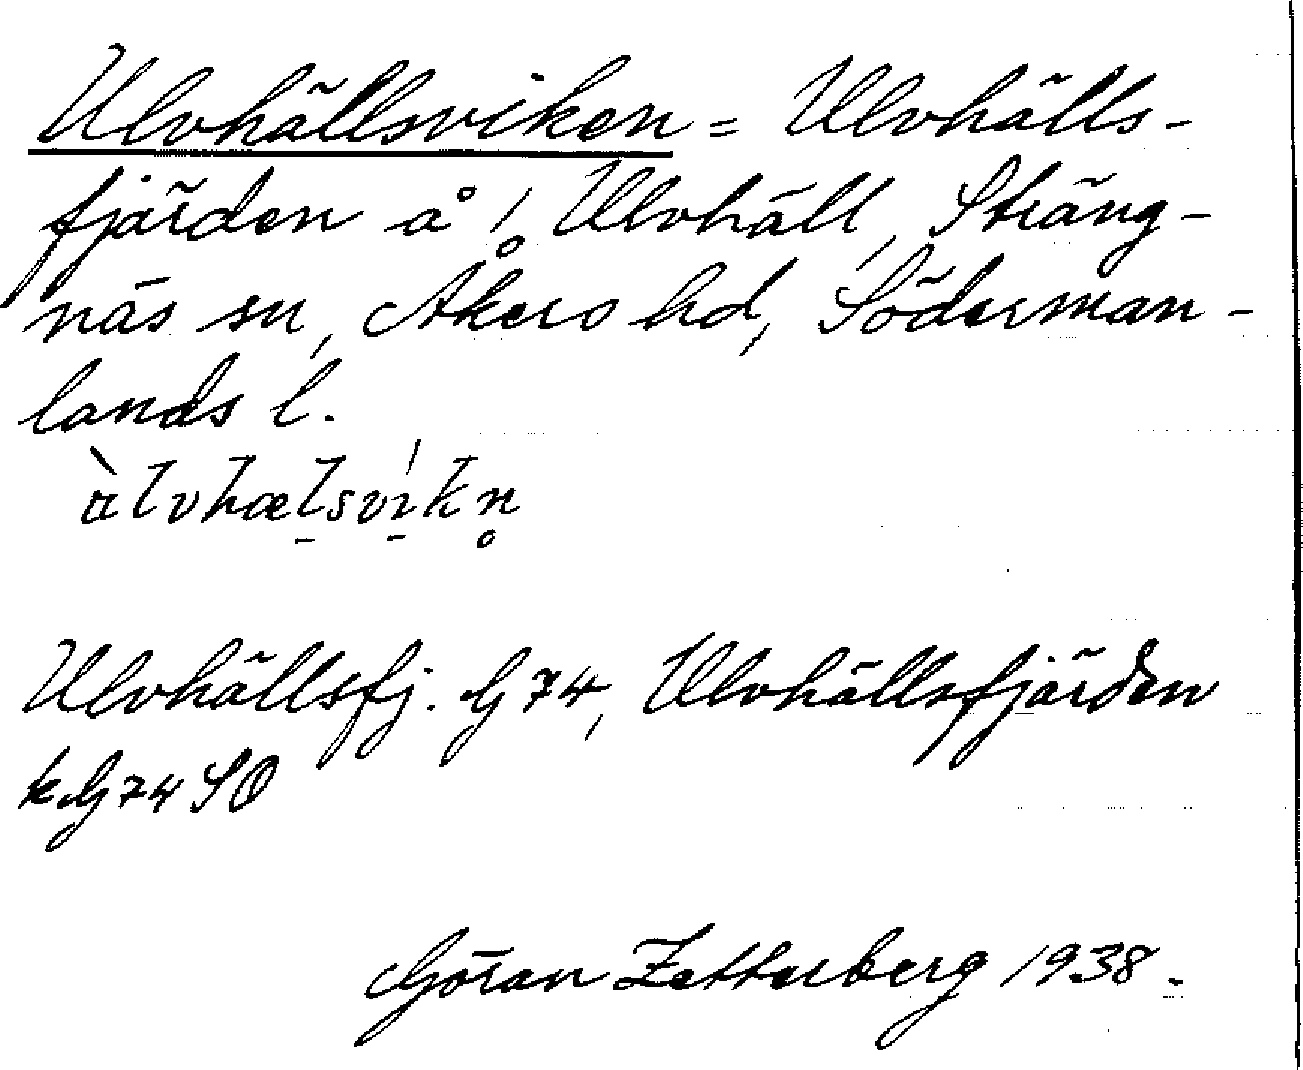 Ulvhällsviken = Ulvhälls-
fjärden å 1 Ulvhäll, Sträng-
näs sn, Åkers hd, Söderman-
lands l.
Ulvhällsfj. G 74, Ulvhällsfjärden
k. G 74 SO
Göran Zetterberg 1938.